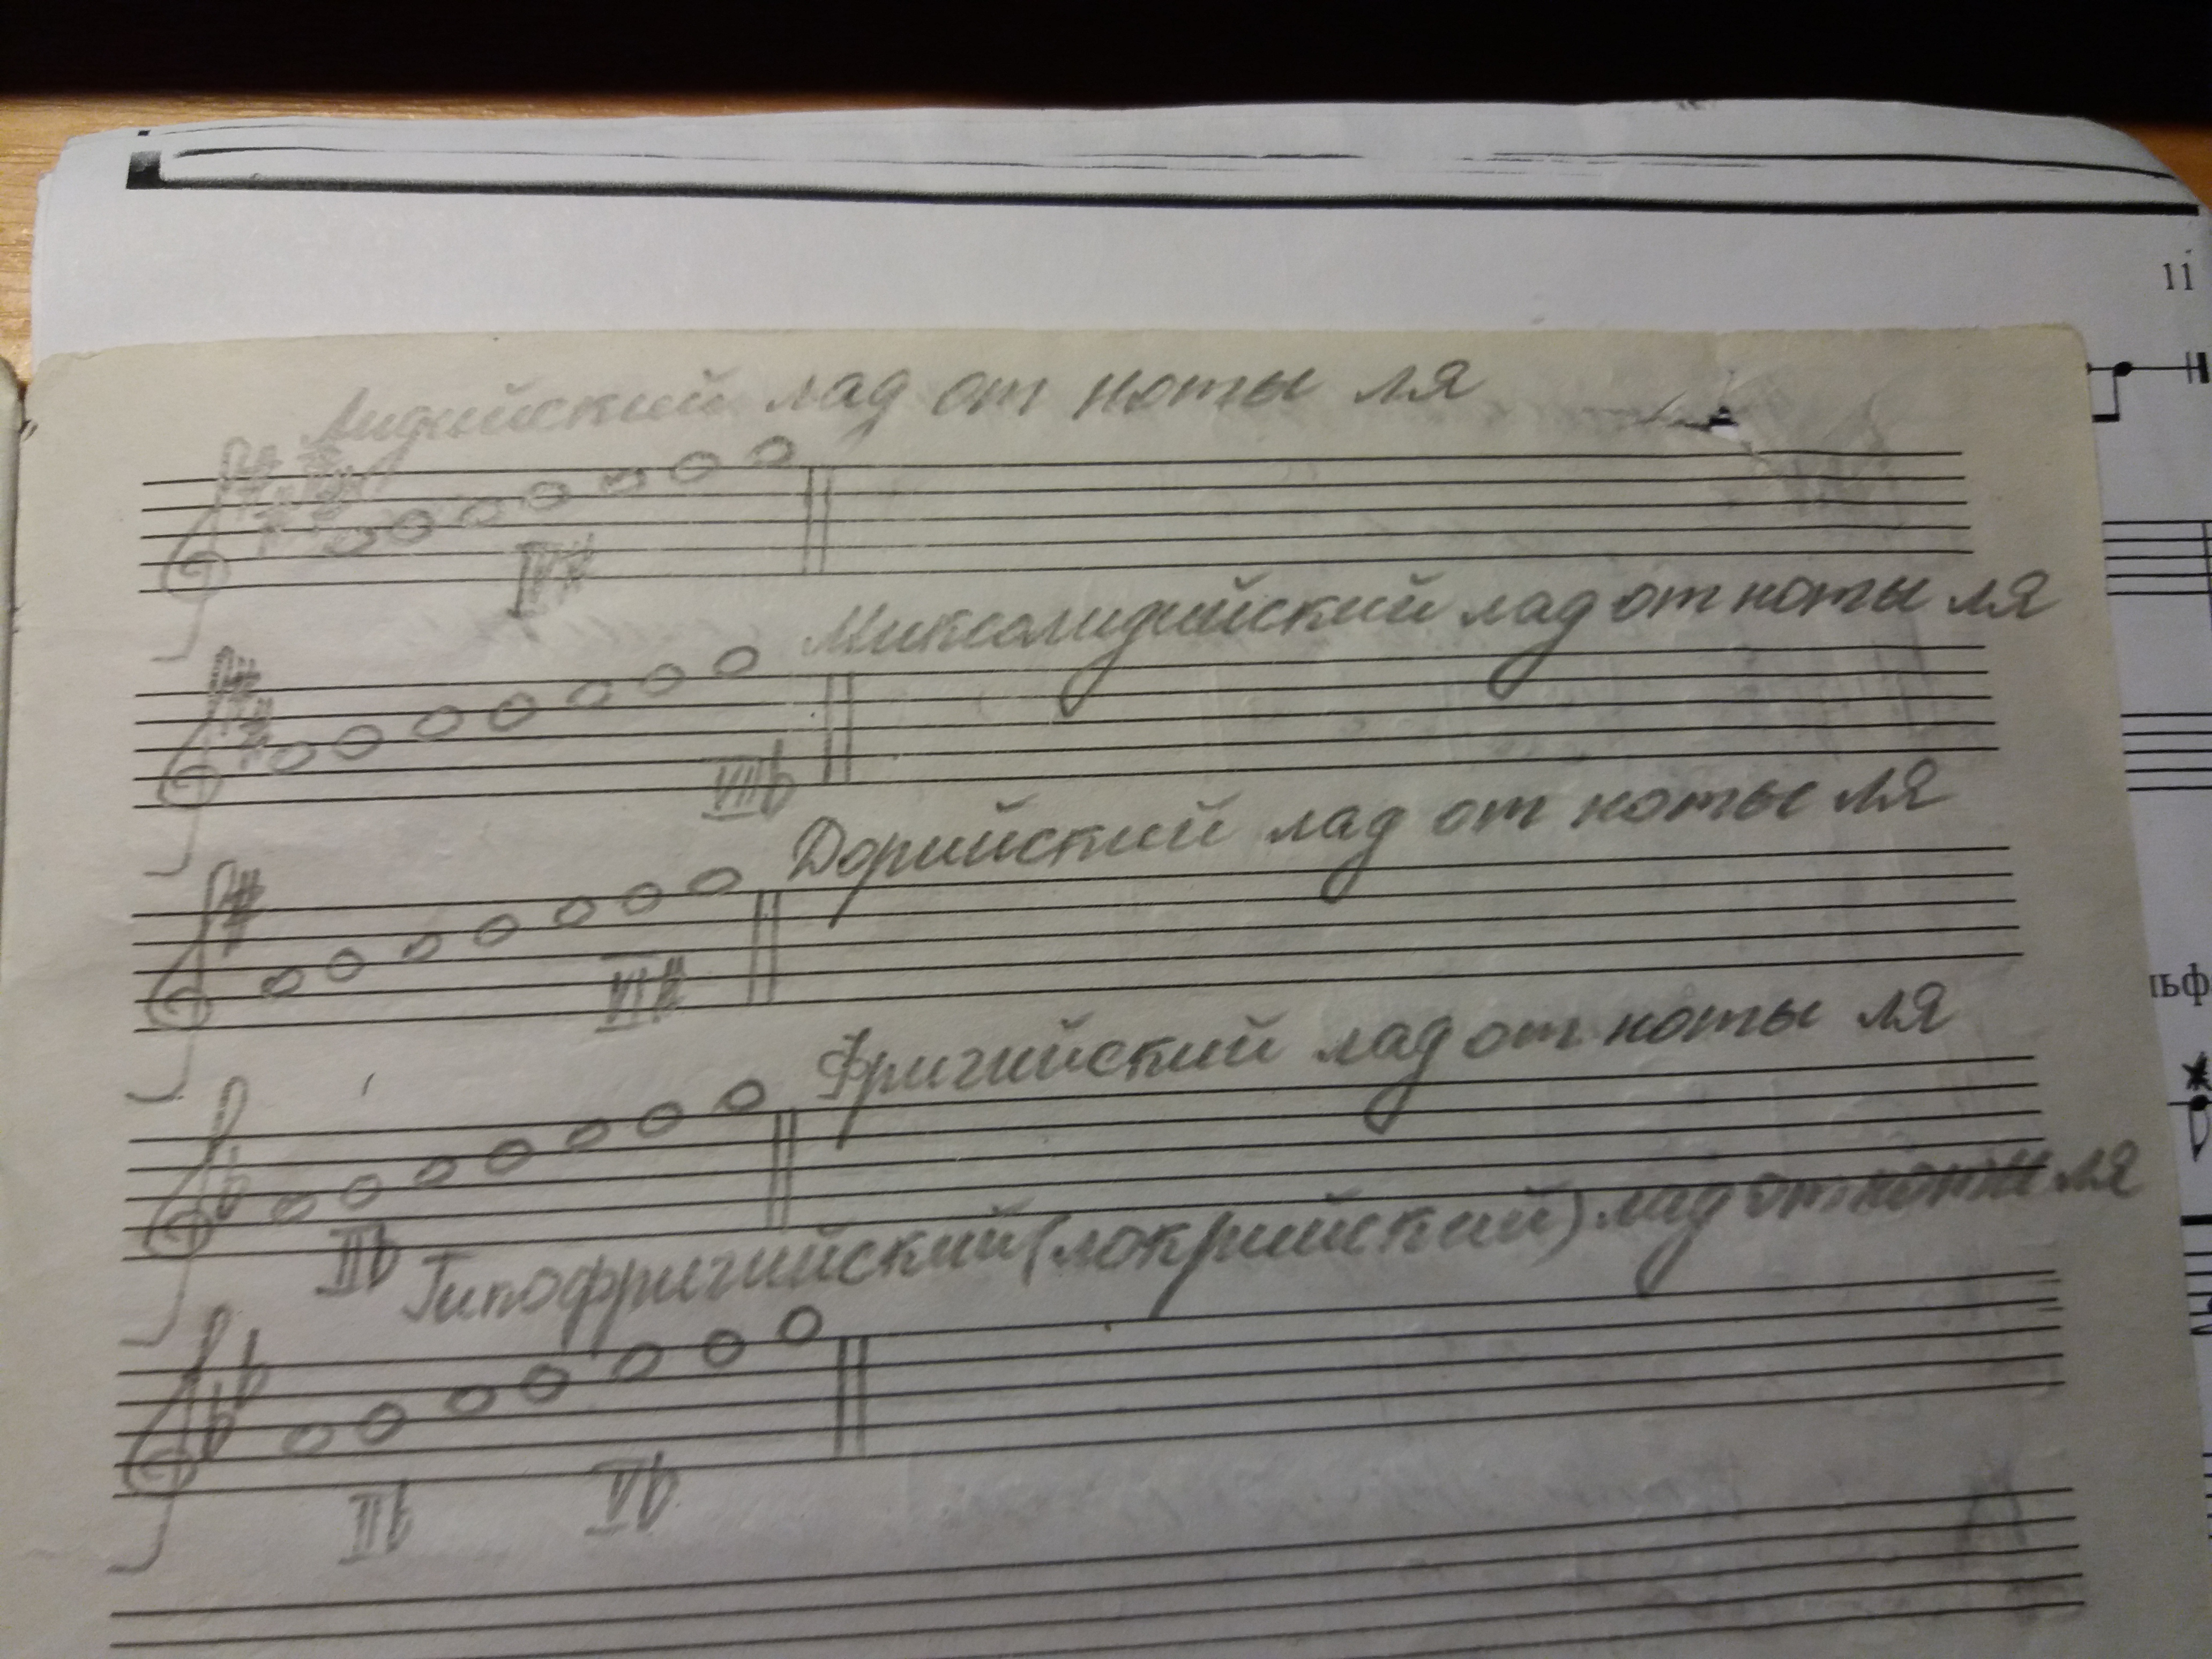 11
Лидийский лад от ноты ля
IV#
Миксолидийский лад от ноты ля
VIIb
Дорийский лад от ноты ля
VI#
Фригийский лад от ноты ля
IIb
Гипофригийский (локрийский) лад от ноты ля
IIb Vb